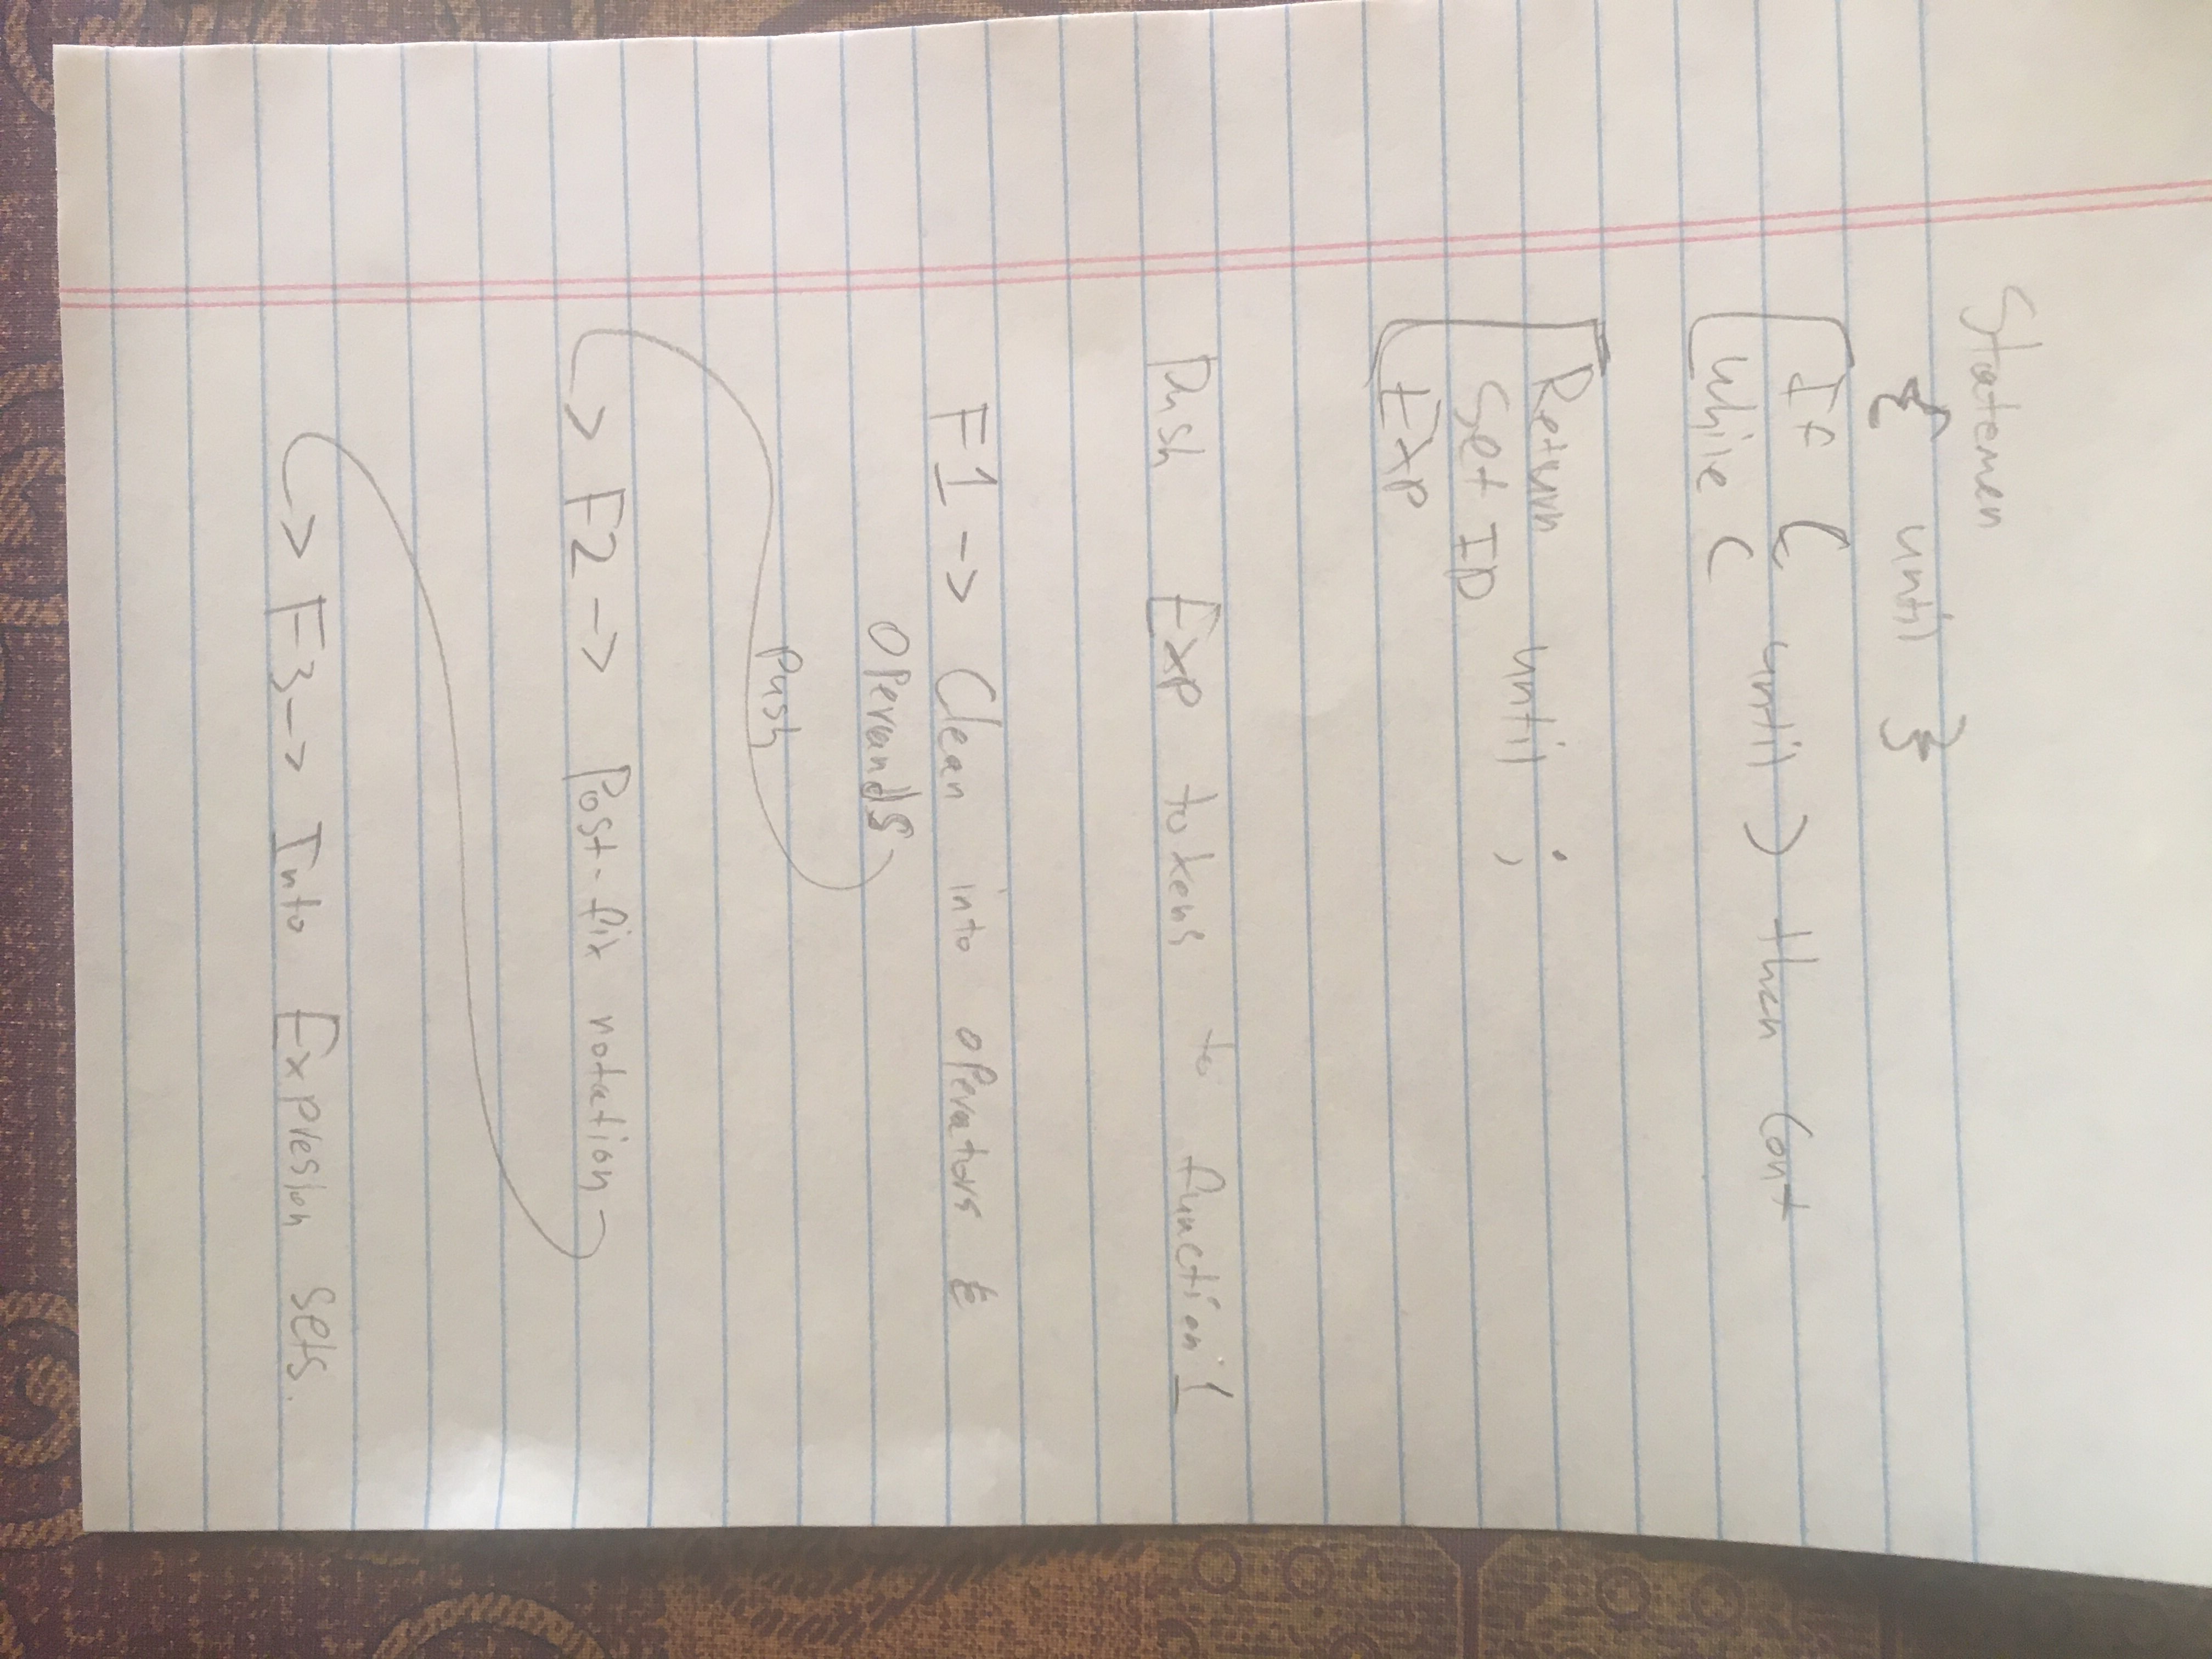 Statemen
{ until }
If ( until ) then cont
while (
Return until ;
Set ID
Exp
Push Exp tokens to function 1
F1 -> Clean into operators &
operands
Push
-> F2 -> Post-fix notation
-> F3 -> Into Expresion sets.